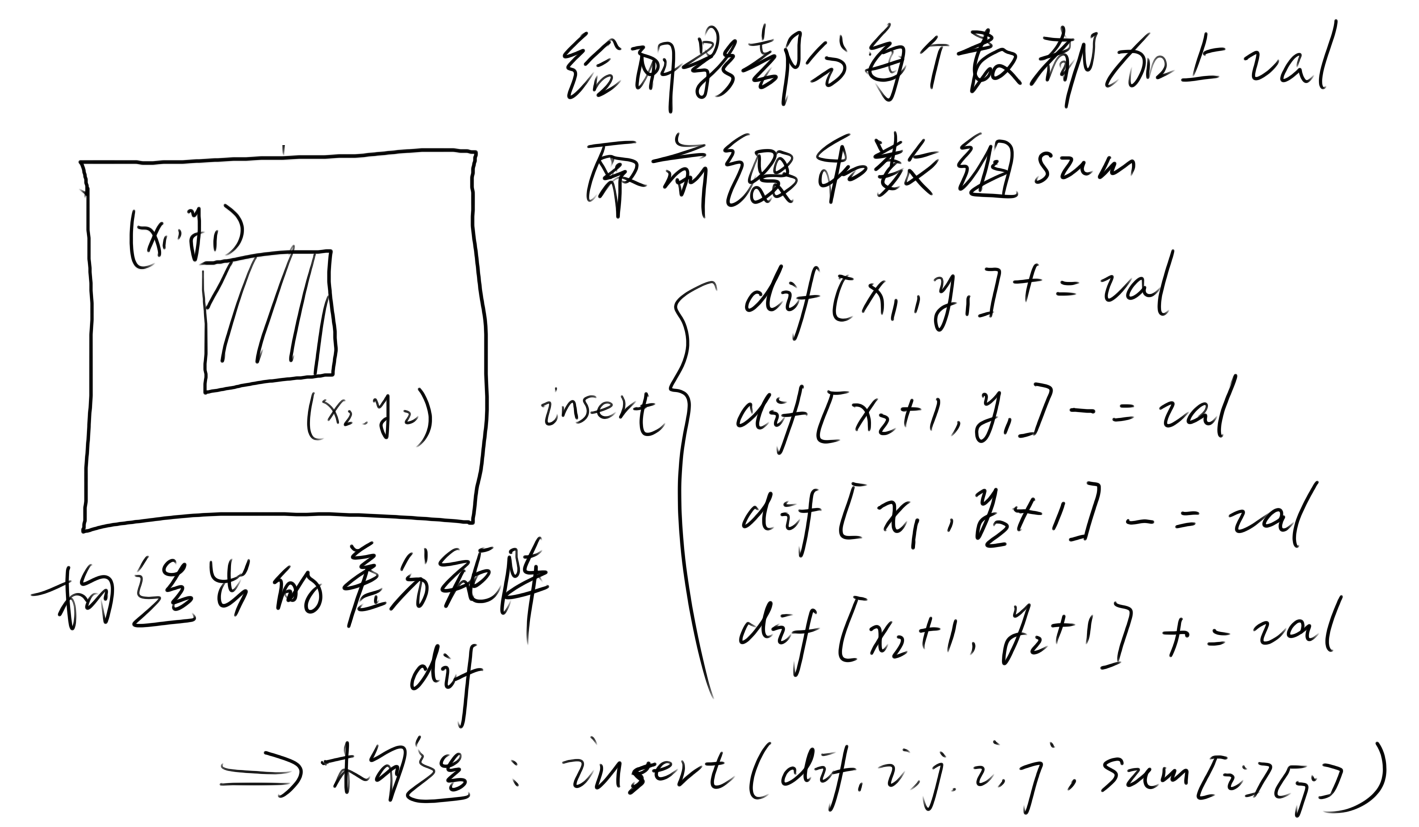 给阴影部分每个数都加上val
原前缀和数组sum
(x₁,y₁)
(x₂,y₂)
insert
dif[x₁,y₁]+=val
dif[x₂+1,y₁]-=val
dif[x₁,y₂+1]-=val
dif[x₂+1,y₂+1]+=val
构造出的差分矩阵
dif
⇒构造:insert(dif,i,j,i,j,sum[i][j])